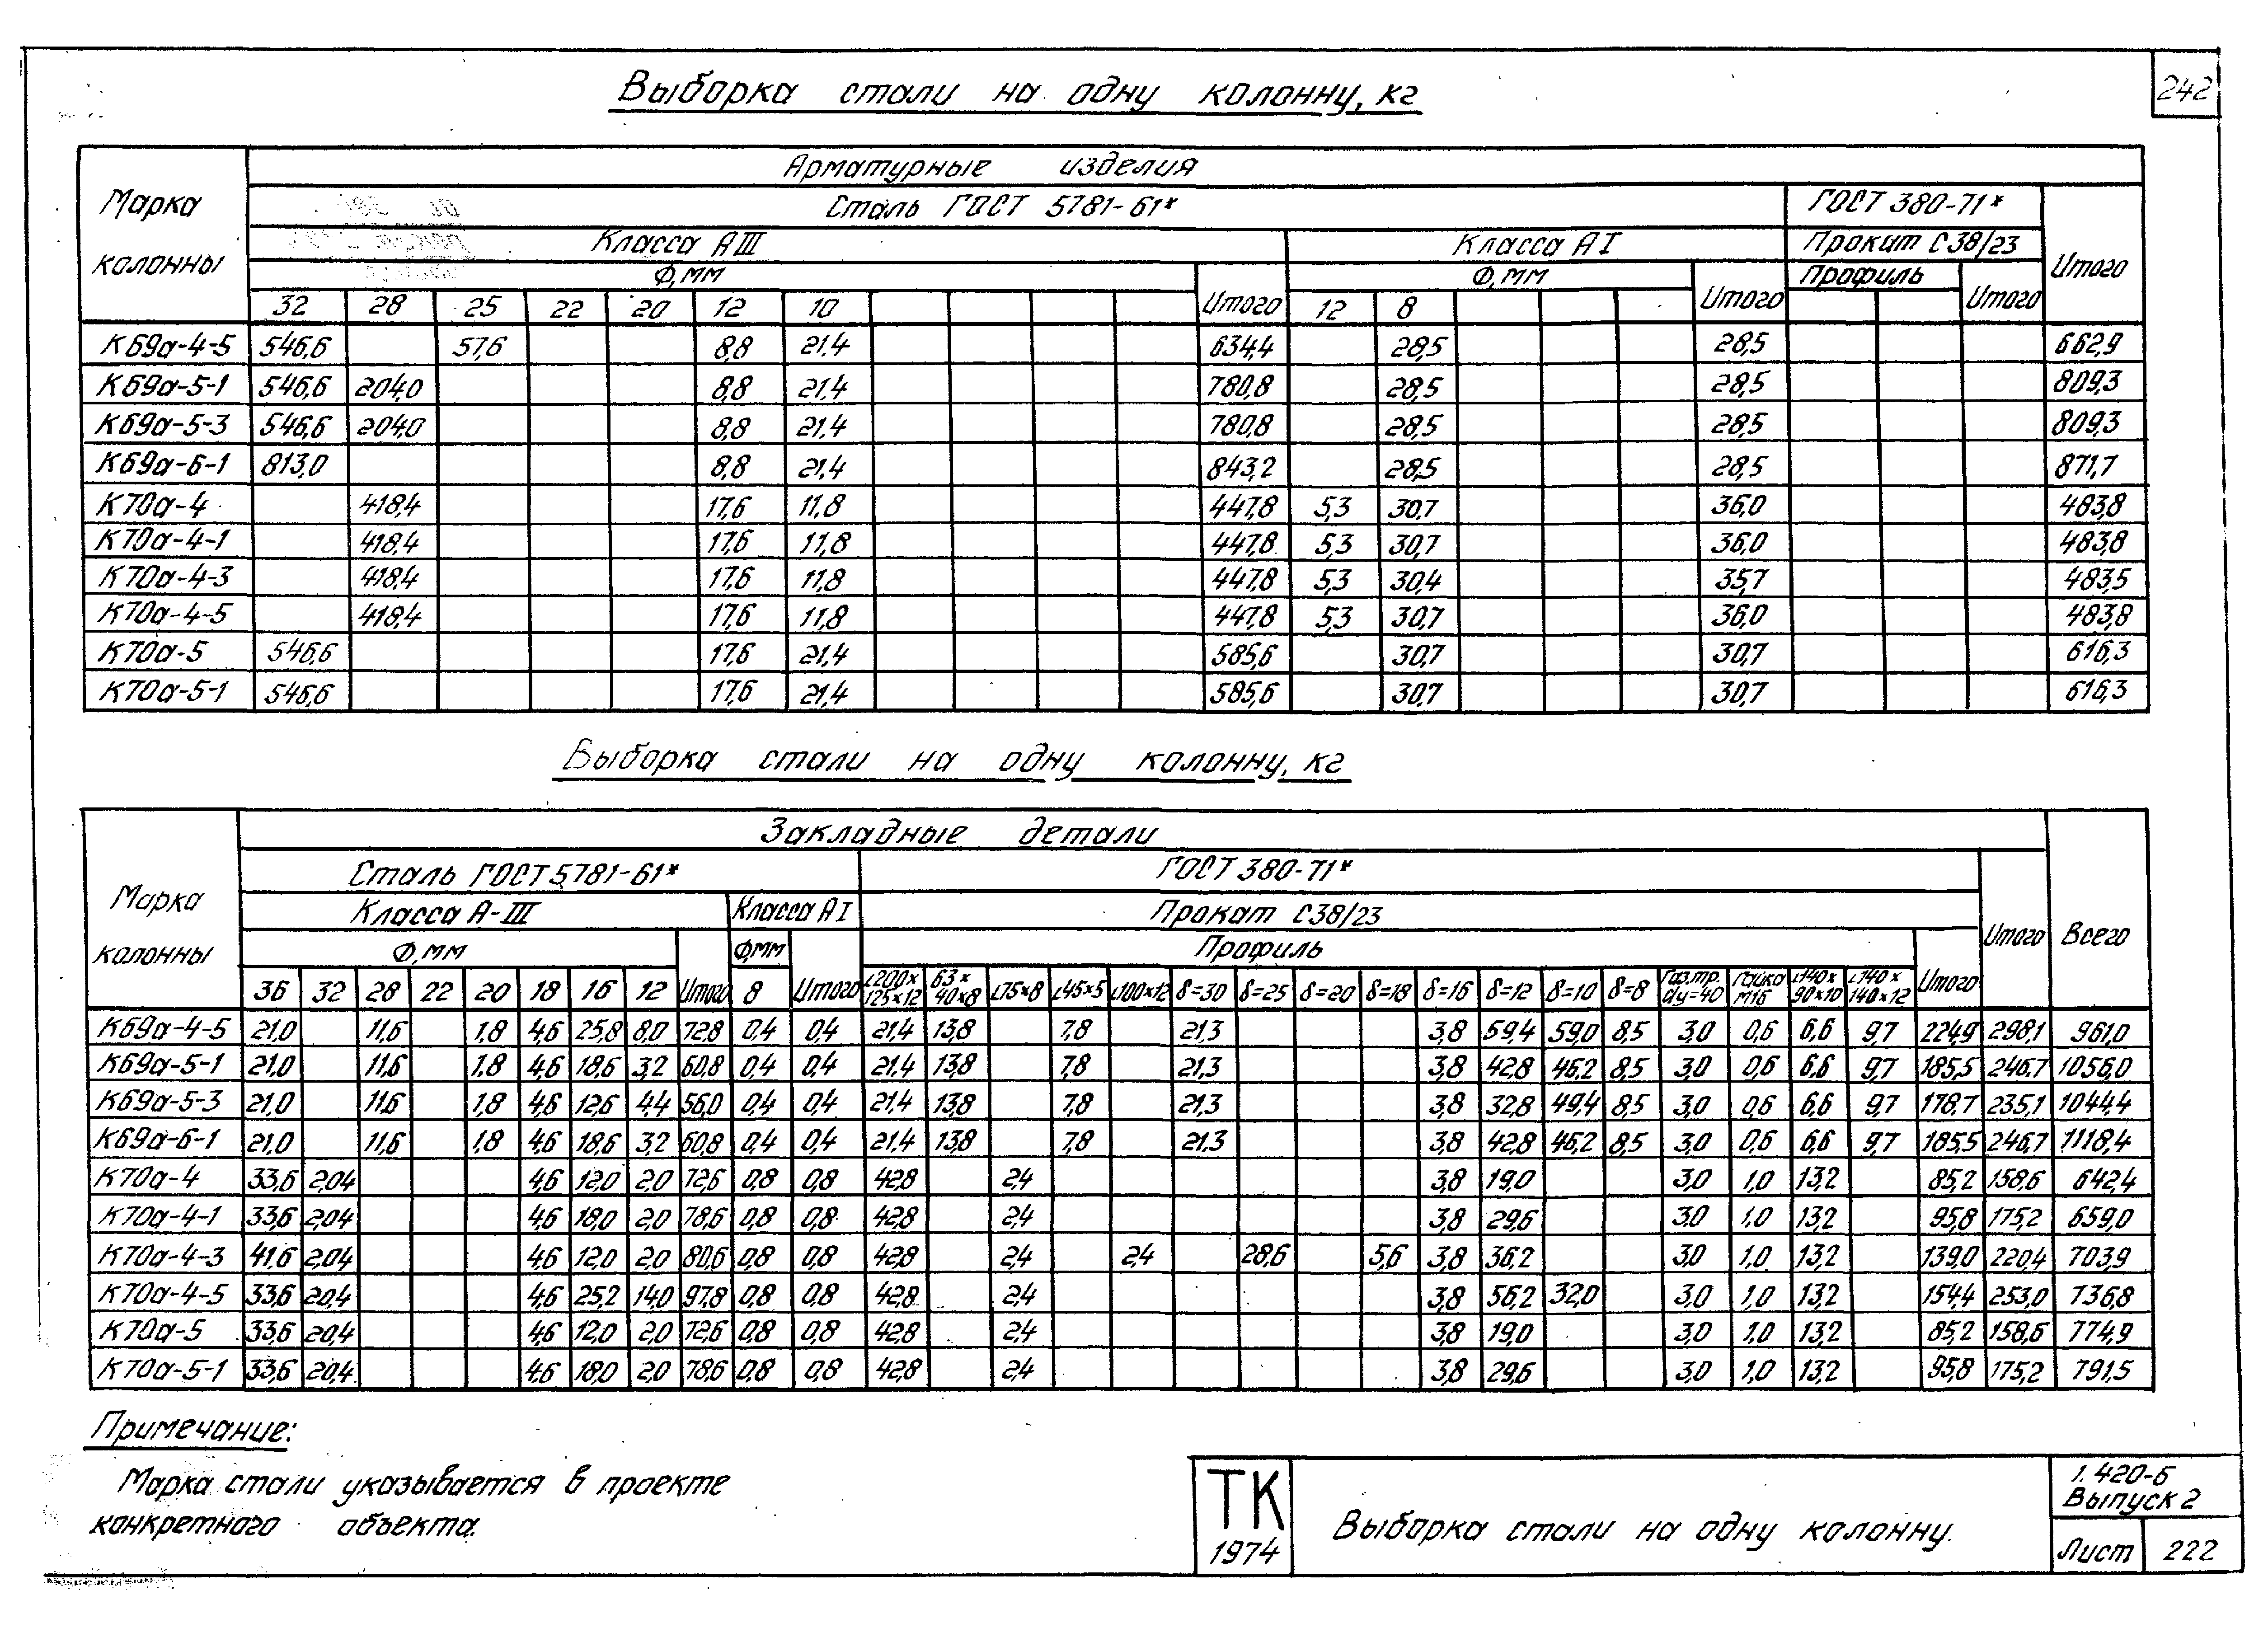 242
Выборка стали на одну колонну, кг
Марка колонны
Арматурные изделия
Сталь ГОСТ 5781-61* ГОСТ 380-71* Итого
Класса АIII Класса АI Прокат С38/23
Ф,мм Итого Ф,мм Итого Профиль Итого
32 28 25 22 20 12 10 12 8
К69а-4-5 546,6 57,6 8,8 21,4 634,4 28,5 28,5 662,9
К69а-5-1 546,6 204,0 8,8 21,4 780,8 28,5 28,5 809,3
К69а-5-3 546,6 204,0 8,8 21,4 780,8 28,5 28,5 809,3
К69а-6-1 813,0 8,8 21,4 843,2 28,5 28,5 871,7
К70а-4 418,4 17,6 11,8 447,8 5,3 30,7 36,0 483,8
К70а-4-1 418,4 17,6 11,8 447,8 5,3 30,7 36,0 483,8
К70а-4-3 418,4 17,6 11,8 447,8 5,3 30,4 35,7 483,5
К70а-4-5 418,4 17,6 11,8 447,8 5,3 30,7 36,0 483,8
К70а-5 546,6 17,6 21,4 585,6 30,7 30,7 616,3
К70а-5-1 546,6 17,6 21,4 585,6 30,7 30,7 616,3
Выборка стали на одну колонну, кг
Марка колонны
Закладные детали Всего
Сталь ГОСТ 5781-61* ГОСТ 380-71* Итого
Класса А-III Класса АI Прокат С38/23
Ф,мм Итого Ф,мм Итого Профиль Итого
36 32 28 22 20 18 16 12 8 L200×125×12 63×40×8 L75×8 L45×5 L100×12 δ=30 δ=25 δ=20 δ=18 δ=16 δ=12 δ=10 δ=8 Газ.тр. dу=40 Гайка М16 L140×90×10 L140×140×12
К69а-4-5 21,0 11,6 1,8 4,6 25,8 8,0 72,8 0,4 0,4 21,4 13,8 7,8 21,3 3,8 59,4 59,0 8,5 3,0 0,6 6,6 9,7 224,9 298,1 961,0
К69а-5-1 21,0 11,6 1,8 4,6 18,6 3,2 60,8 0,4 0,4 21,4 13,8 7,8 21,3 3,8 42,8 46,2 8,5 3,0 0,6 6,6 9,7 185,5 246,7 1056,0
К69а-5-3 21,0 11,6 1,8 4,6 12,6 4,4 56,0 0,4 0,4 21,4 13,8 7,8 21,3 3,8 32,8 49,4 8,5 3,0 0,6 6,6 9,7 178,7 235,1 1044,4
К69а-6-1 21,0 11,6 1,8 4,6 18,6 3,2 60,8 0,4 0,4 21,4 13,8 7,8 21,3 3,8 42,8 46,2 8,5 3,0 0,6 6,6 9,7 185,5 246,7 1118,4
К70а-4 33,6 20,4 4,6 12,0 2,0 72,6 0,8 0,8 42,8 2,4 3,8 19,0 3,0 1,0 13,2 85,2 158,6 642,4
К70а-4-1 33,6 20,4 4,6 18,0 2,0 78,6 0,8 0,8 42,8 2,4 3,8 29,6 3,0 1,0 13,2 95,8 175,2 659,0
К70а-4-3 41,6 20,4 4,6 12,0 2,0 80,6 0,8 0,8 42,8 2,4 2,4 28,6 5,6 3,8 36,2 3,0 1,0 13,2 139,0 220,4 703,9
К70а-4-5 33,6 20,4 4,6 25,2 14,0 97,8 0,8 0,8 42,8 2,4 3,8 56,2 32,0 3,0 1,0 13,2 154,4 253,0 736,8
К70а-5 33,6 20,4 4,6 12,0 2,0 72,6 0,8 0,8 42,8 2,4 3,8 19,0 3,0 1,0 13,2 85,2 158,6 774,9
К70а-5-1 33,6 20,4 4,6 18,0 2,0 78,6 0,8 0,8 42,8 2,4 3,8 29,6 3,0 1,0 13,2 95,8 175,2 791,5
Примечание:
Марка стали указывается в проекте
конкретного объекта.
ТК
1974
Выборка стали на одну колонну.
1.420-6
Выпуск 2
Лист 222